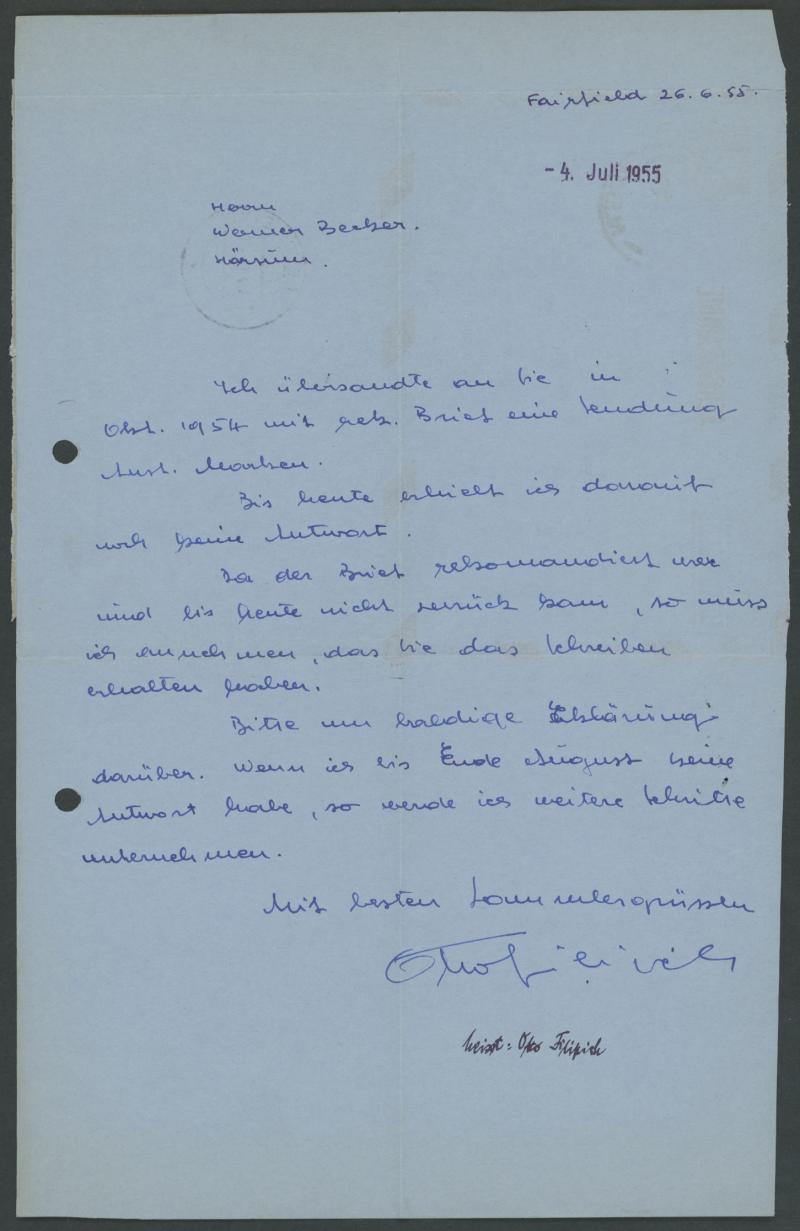 Fairfield 26.6.55.
- 4. Juli 1955
Herrn
Werner Becker.
Hörsum.
Ich übersandte an Sie in
Okt. 1954 mit rek. Brief eine Sendung
Aust. Marken.
Bis heute erhielt ich darauf
noch keine Antwort.
Da der Brief rekomandiert war
und bis heute nicht zurück kam, so muss
ich annehmen, das Sie das Schreiben
erhalten haben.
Bitte um baldige Erklärung
darüber. Wenn ich bis Ende August keine
Antwort habe, so werde ich weitere Schritte
unternehmen.
Mit besten Sammlergrüssen
Otto Filipich
heisst: Otto Filipich